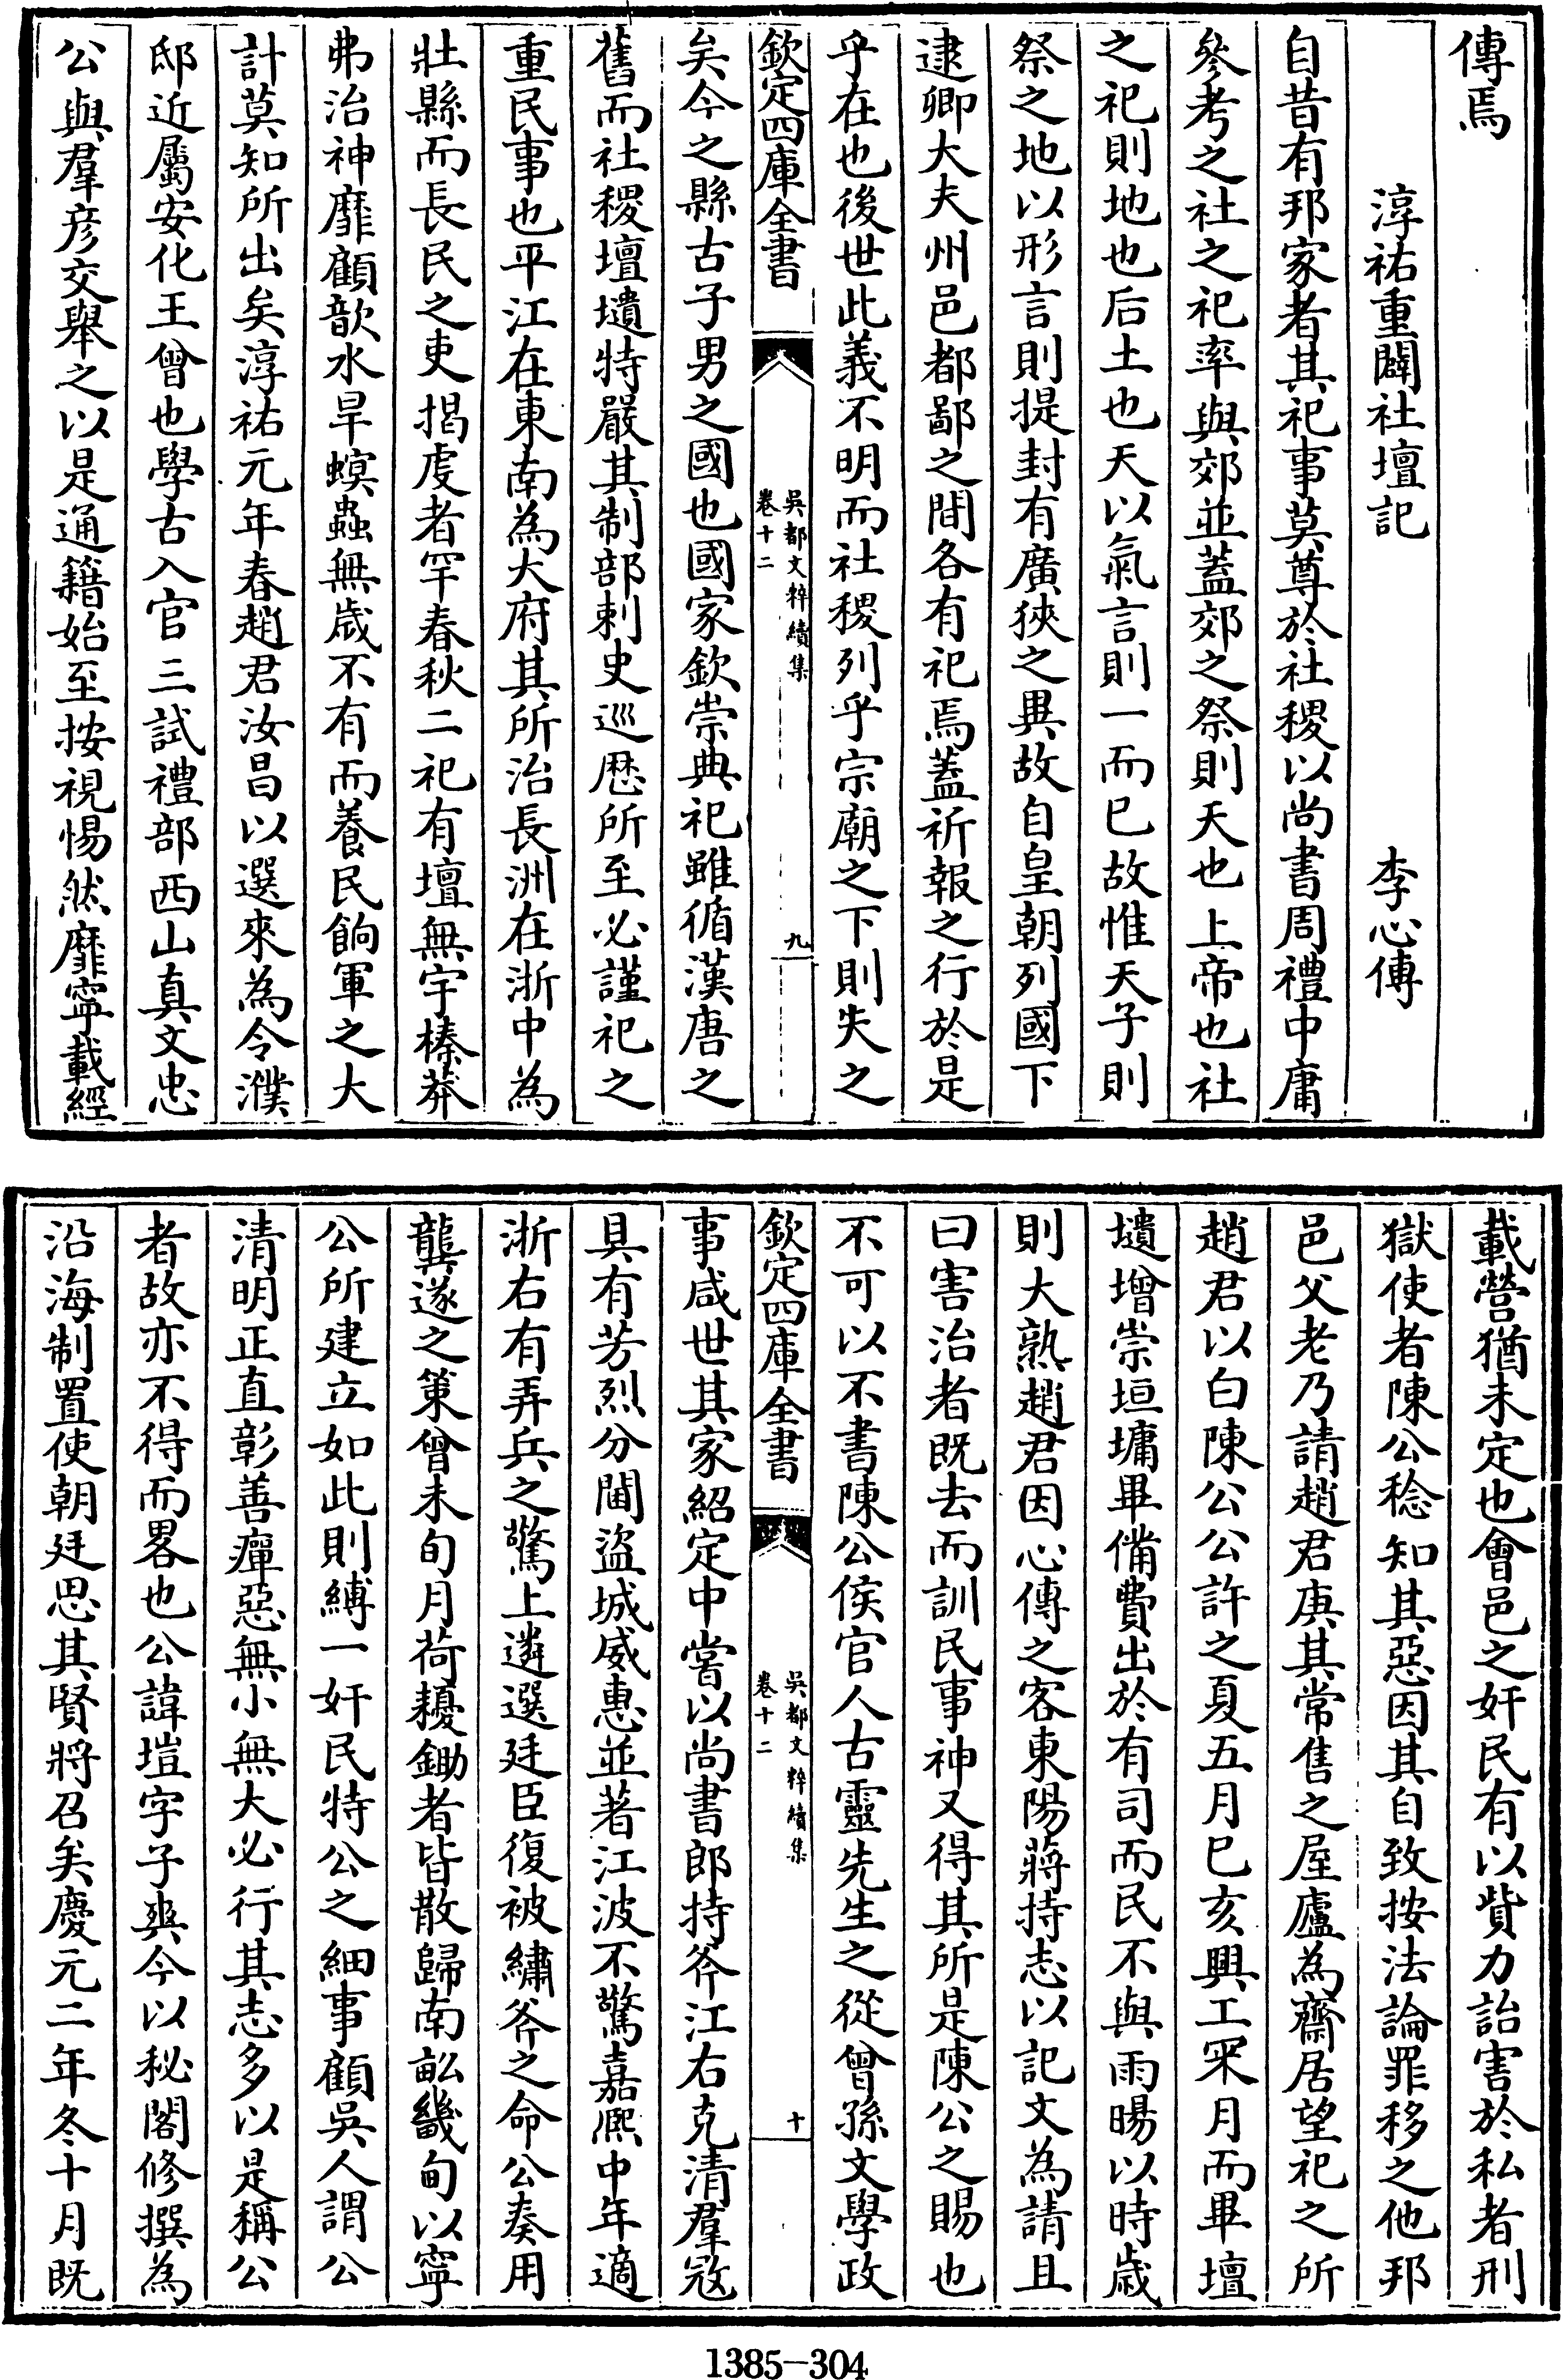 傳焉
淳祐重闢社壇記　李心傳
自昔有邦家者其祀事莫尊於社稷以尚書周禮中庸
參考之社之祀率與郊並蓋郊之祭則天也上帝也社
之祀則地也后土也天以氣言則一而已故惟天子則
祭之地以形言則提封有廣狹之異故自皇朝列國下
逮卿大夫州邑都鄙之間各有祀焉蓋祈報之行於是
乎在也後世此義不明而社稷列乎宗廟之下則失之
欽定四庫全書　吳都文粹續集　卷十二　九
矣今之縣古子男之國也國家欽崇典祀雖循漢唐之
舊而社稷壇壝特嚴其制部刺史巡歴所至必謹祀之
重民事也平江在東南為大府其所治長洲在浙中為
壯縣而長民之吏揭虔者罕春秋二祀有壇無宇榛莽
弗治神靡顧歆水旱螟蟲無歲不有而養民餉軍之大
計莫知所出矣淳祐元年春趙君汝昌以選來為令濮
邸近屬安化王曾也學古入官三試禮部西山真文忠
公與羣彦交舉之以是通籍始至按視惕然靡寧載經
載營猶未定也會邑之奸民有以貲力詒害於私者刑
獄使者陳公稔知其惡因其自致按法論罪移之他邦
邑父老乃請趙君庚其常售之屋廬為齋居望祀之所
趙君以白陳公公許之夏五月巳亥興工罙月而畢壇
壝增崇垣墉畢備費出於有司而民不與雨暘以時歲
則大熟趙君因心傳之客東陽蔣持志以記文為請且
曰害治者既去而訓民事神又得其所是陳公之賜也
不可以不書陳公侯官人古靈先生之從曾孫文學政
欽定四庫全書　吳都文粹續集　卷十二　十
事咸世其家紹定中嘗以尚書郎持斧江右克清羣寇
具有芳烈分閫盜城威惠並著江波不驚嘉熙中年適
浙右有弄兵之驚上遴選廷臣復被繡斧之命公奏用
龔遂之策曾未旬月荷耰鋤者皆散歸南畝畿甸以寧
公所建立如此則縛一奸民特公之細事顧吳人謂公
清明正直彰善癉惡無小無大必行其志多以是稱公
者故亦不得而畧也公諱塏字子爽今以秘閣修撰為
沿海制置使朝廷思其賢將召矣慶元二年冬十月既
1385—304